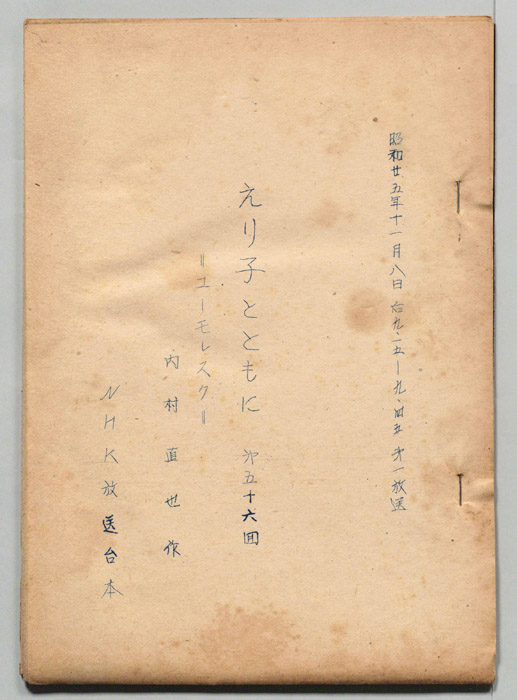 昭和廿五年十一月八日 后九・一五―九・四五 第一放送
えり子とともに 第五十六回
＝ユーモレスク＝
内村直也作
NHK放送台本